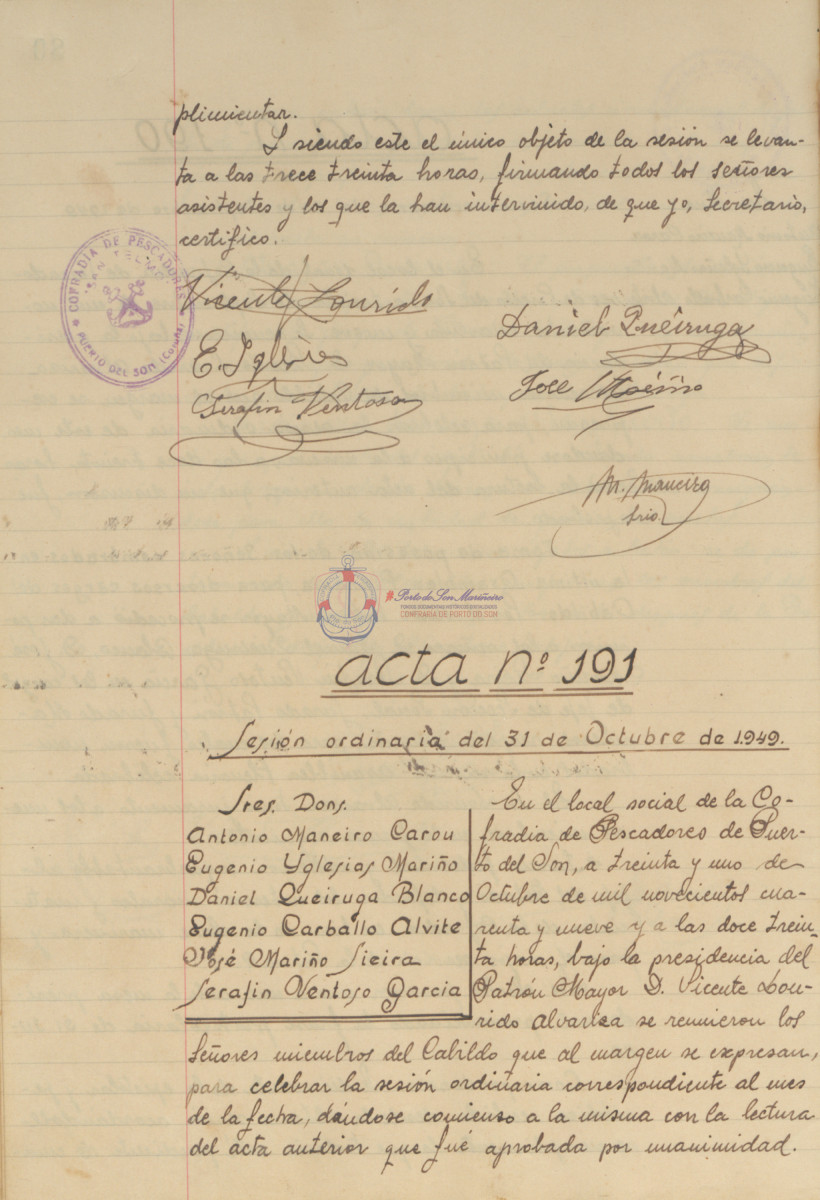 plimientar.
Y siendo este el único objeto de la sesión se levan-
ta a las trece treinta horas, firmando todos los señores
asistentes y los que la han intervinido, de que yo, Secretario,
certifico.
COFRADIA DE PESCADORES
"SAN TELMO"
PUERTO DEL SON (Coruña)
Vicente Lourido
Daniel Queiruga
E. Yglesias
José Mariño
Serafin Ventoso
M. Maneiro
Srio.
#Porto do Son Mariñeiro
FONDOS DOCUMENTAIS HISTÓRICOS DIXITALIZADOS
CONFRARÍA DE PORTO DO SON
acta nº 191
Sesión ordinaria del 31 de Octubre de 1.949.
Sres. Dons.
Antonio Maneiro Carou
Eugenio Yglesias Mariño
Daniel Queiruga Blanco
Eugenio Carballo Alvite
José Mariño Sieira
Serafin Ventoso Garcia
En el local social de la Co-
fradia de Pescadores de Puer-
to del Son, a treinta y uno de
Octubre de mil novecientos cua-
renta y nueve y a las doce trein-
ta horas, bajo la presidencia del
Patrón Mayor D. Vicente Lou-
rido Alvariza se reunieron los
Señores miembros del Cabildo que al margen se expresan,
para celebrar la sesión ordinaria correspondiente al mes
de la fecha, dándose comienso a la misma con la lectura
del acta anterior que fué aprobada por unanimidad.